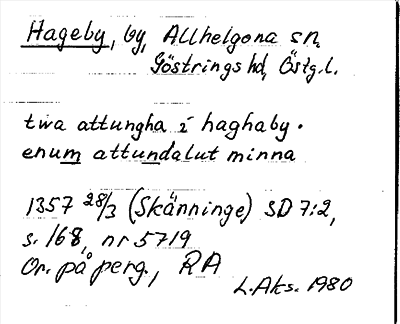 Hageby, by, Allhelgona sn,
Göstrings hd, Östg.l.
twa attungha i haghaby.
enum attundalut minna
1357 28/3 (Skänninge) SD 7:2,
s. 168, nr 5719
Or. på perg., RA
L.Aks. 1980